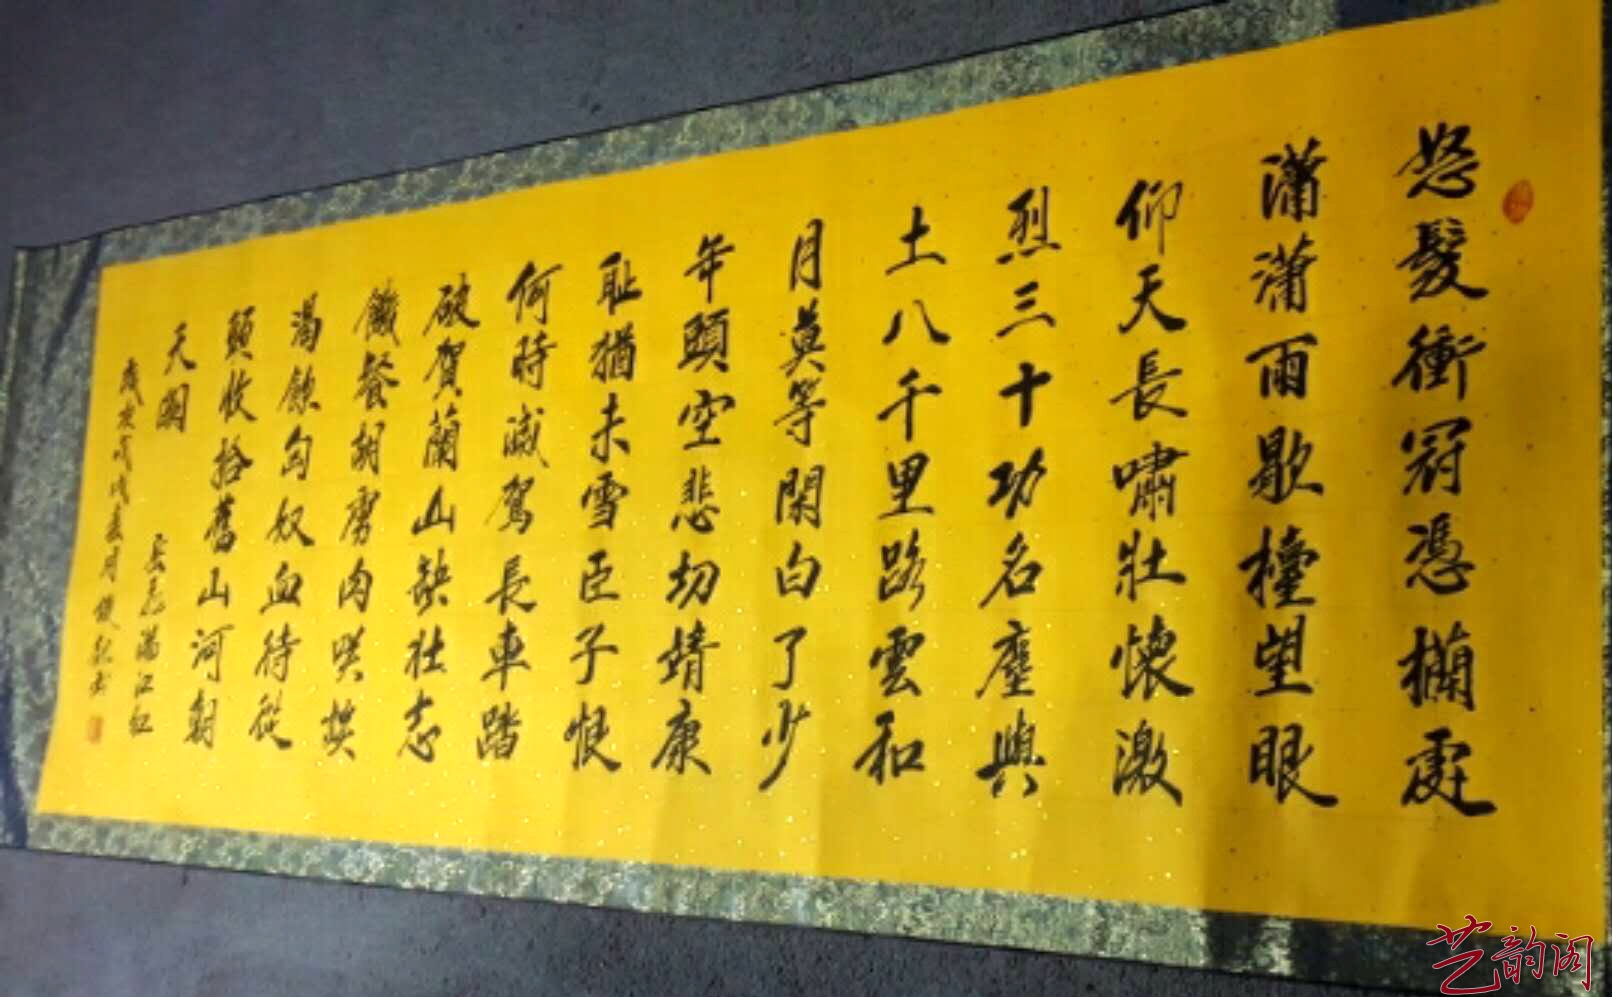 怒髮衝冠憑欄處
瀟瀟雨歇擡望眼
仰天長嘯壯懷激
烈三十功名塵與
土八千里路雲和
月莫等閑白了少
年頭空悲切靖康
耻猶未雪臣子恨
何時滅駕長車踏
破賀蘭山缺壯志
饑餐胡虜肉笑談
渴飲匈奴血待從
頭收拾舊山河朝
天闕
岳飛滿江紅
歲次戊戌春月
艺韵阁